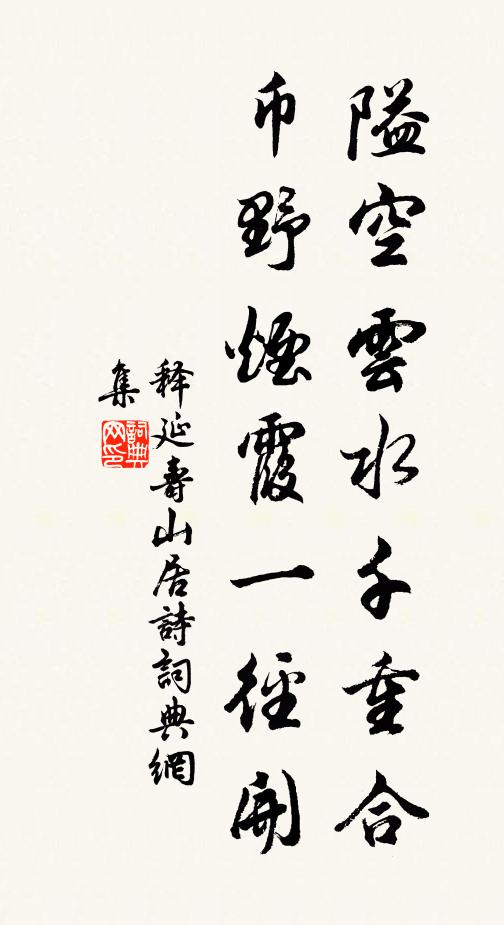 隘空雲水千重合
帀野煙霞一徑開
释延壽山居詩詞典網
集
詞典
网印